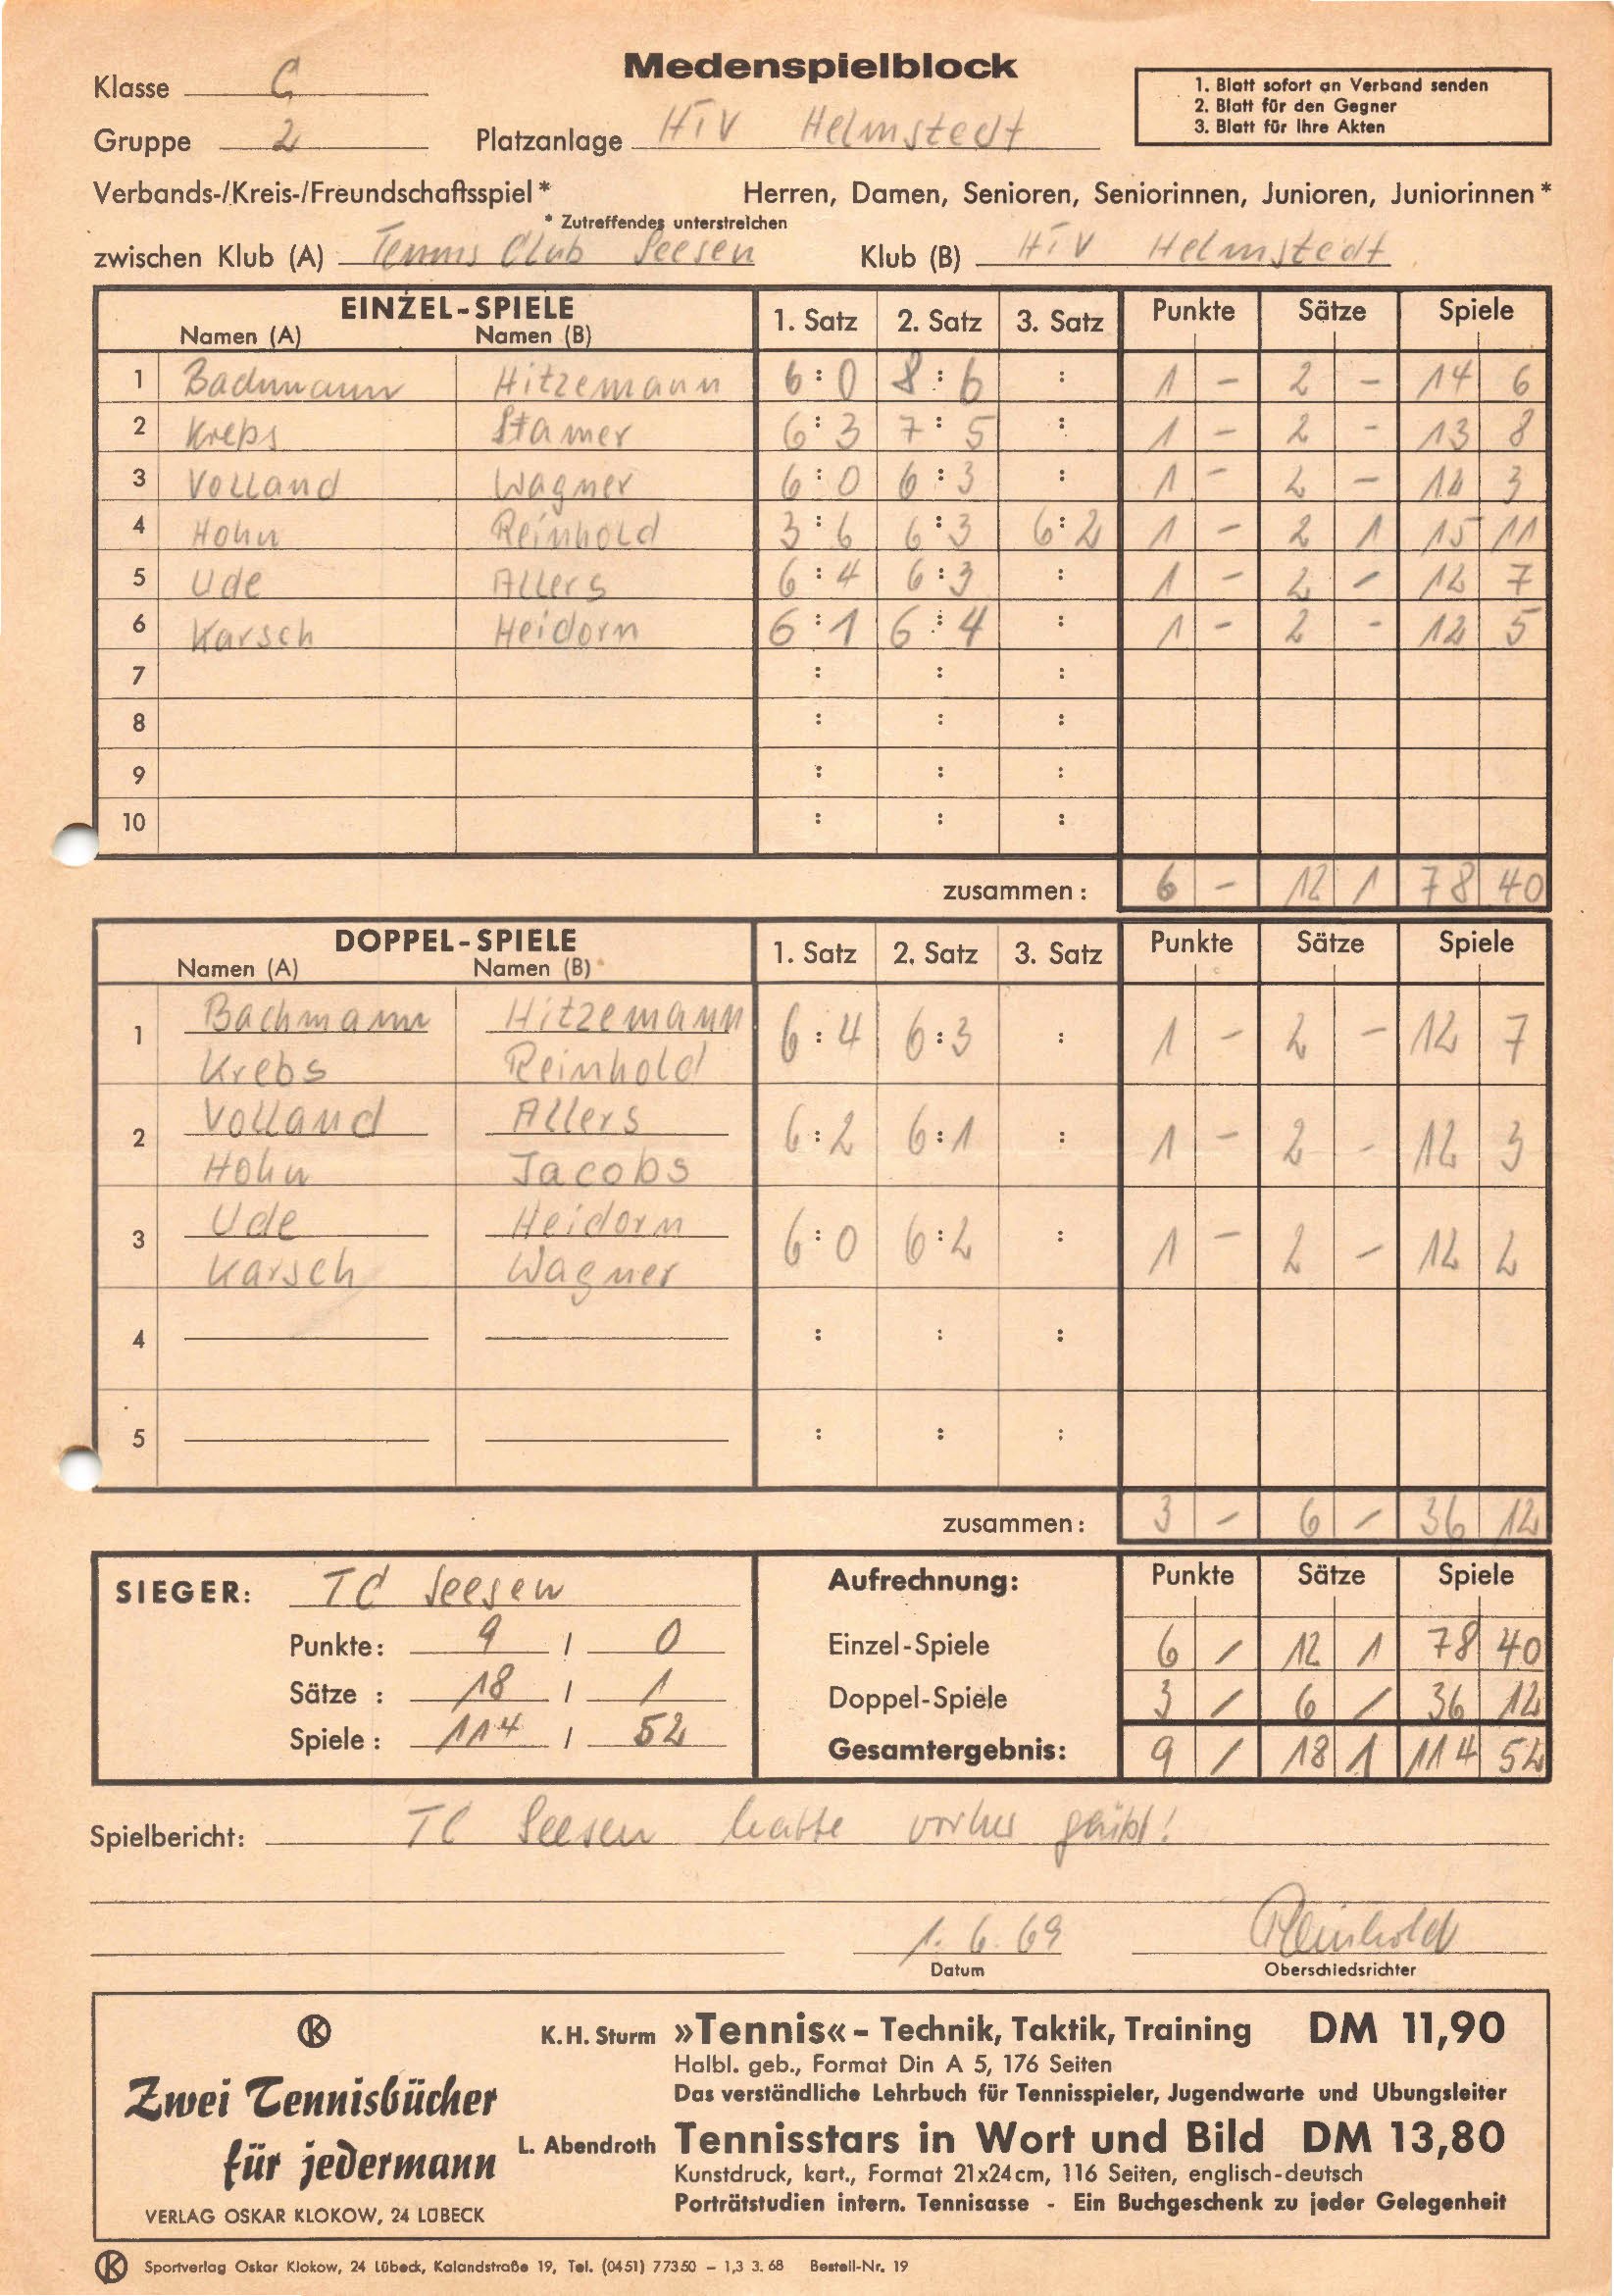 Medenspielblock
Klasse C
1. Blatt sofort an Verband senden
2. Blatt für den Gegner
3. Blatt für Ihre Akten
Gruppe 2 Platzanlage HTV Helmstedt
Verbands-/Kreis-/Freundschaftsspiel* Herren, Damen, Senioren, Seniorinnen, Junioren, Juniorinnen*
* Zutreffendes unterstreichen
zwischen Klub (A) Tennis Club Seesen Klub (B) HTV Helmstedt
EINZEL-SPIELE 1. Satz 2. Satz 3. Satz Punkte Sätze Spiele
Namen (A) Namen (B)
1 Bachmann Hitzemann 6:0 8:6 : 1 - 2 - 14 6
2 Krebs Stamer 6:3 7:5 : 1 - 2 - 13 8
3 Volland Wagner 6:0 6:3 : 1 - 2 - 12 3
4 Hohn Reinhold 3:6 6:3 6:2 1 - 2 1 15 11
5 Ude Allers 6:4 6:3 : 1 - 2 - 12 7
6 Karsch Heidorn 6:1 6:4 : 1 - 2 - 12 5
7 : : :
8 : : :
9 : : :
10 : : :
zusammen: 6 - 12 1 78 40
DOPPEL-SPIELE 1. Satz 2. Satz 3. Satz Punkte Sätze Spiele
Namen (A) Namen (B)
Bachmann Hitzemann
1 6:4 6:3 : 1 - 2 - 12 7
Krebs Reinhold
Volland Allers
2 6:2 6:1 : 1 - 2 - 12 3
Hohn Jacobs
Ude Heidorn
3 6:0 6:2 : 1 - 2 - 12 2
Karsch Wagner
4 : : :
5 : : :
zusammen: 3 - 6 - 36 12
SIEGER: TC Seesen Aufrechnung: Punkte Sätze Spiele
Punkte: 9 / 0 Einzel-Spiele 6 / 12 1 78 40
Sätze : 18 / 1 Doppel-Spiele 3 / 6 / 36 12
Spiele : 114 / 52 Gesamtergebnis: 9 / 18 1 114 52
Spielbericht: TC Seesen hatte vorher geübt!
1. 6. 69 Reinhold
Datum Oberschiedsrichter
K
K. H. Sturm »Tennis« - Technik, Taktik, Training DM 11,90
Halbl. geb., Format Din A 5, 176 Seiten
Zwei Tennisbücher
Das verständliche Lehrbuch für Tennisspieler, Jugendwarte und Übungsleiter
für jedermann
L. Abendroth Tennisstars in Wort und Bild DM 13,80
Kunstdruck, kart., Format 21x24cm, 116 Seiten, englisch-deutsch
VERLAG OSKAR KLOKOW, 24 LÜBECK
Porträtstudien intern. Tennisasse - Ein Buchgeschenk zu jeder Gelegenheit
K Sportverlag Oskar Klokow, 24 Lübeck, Kalandstraße 19, Tel. (0451) 77350 - 1,3 3. 68 Bestell-Nr. 19